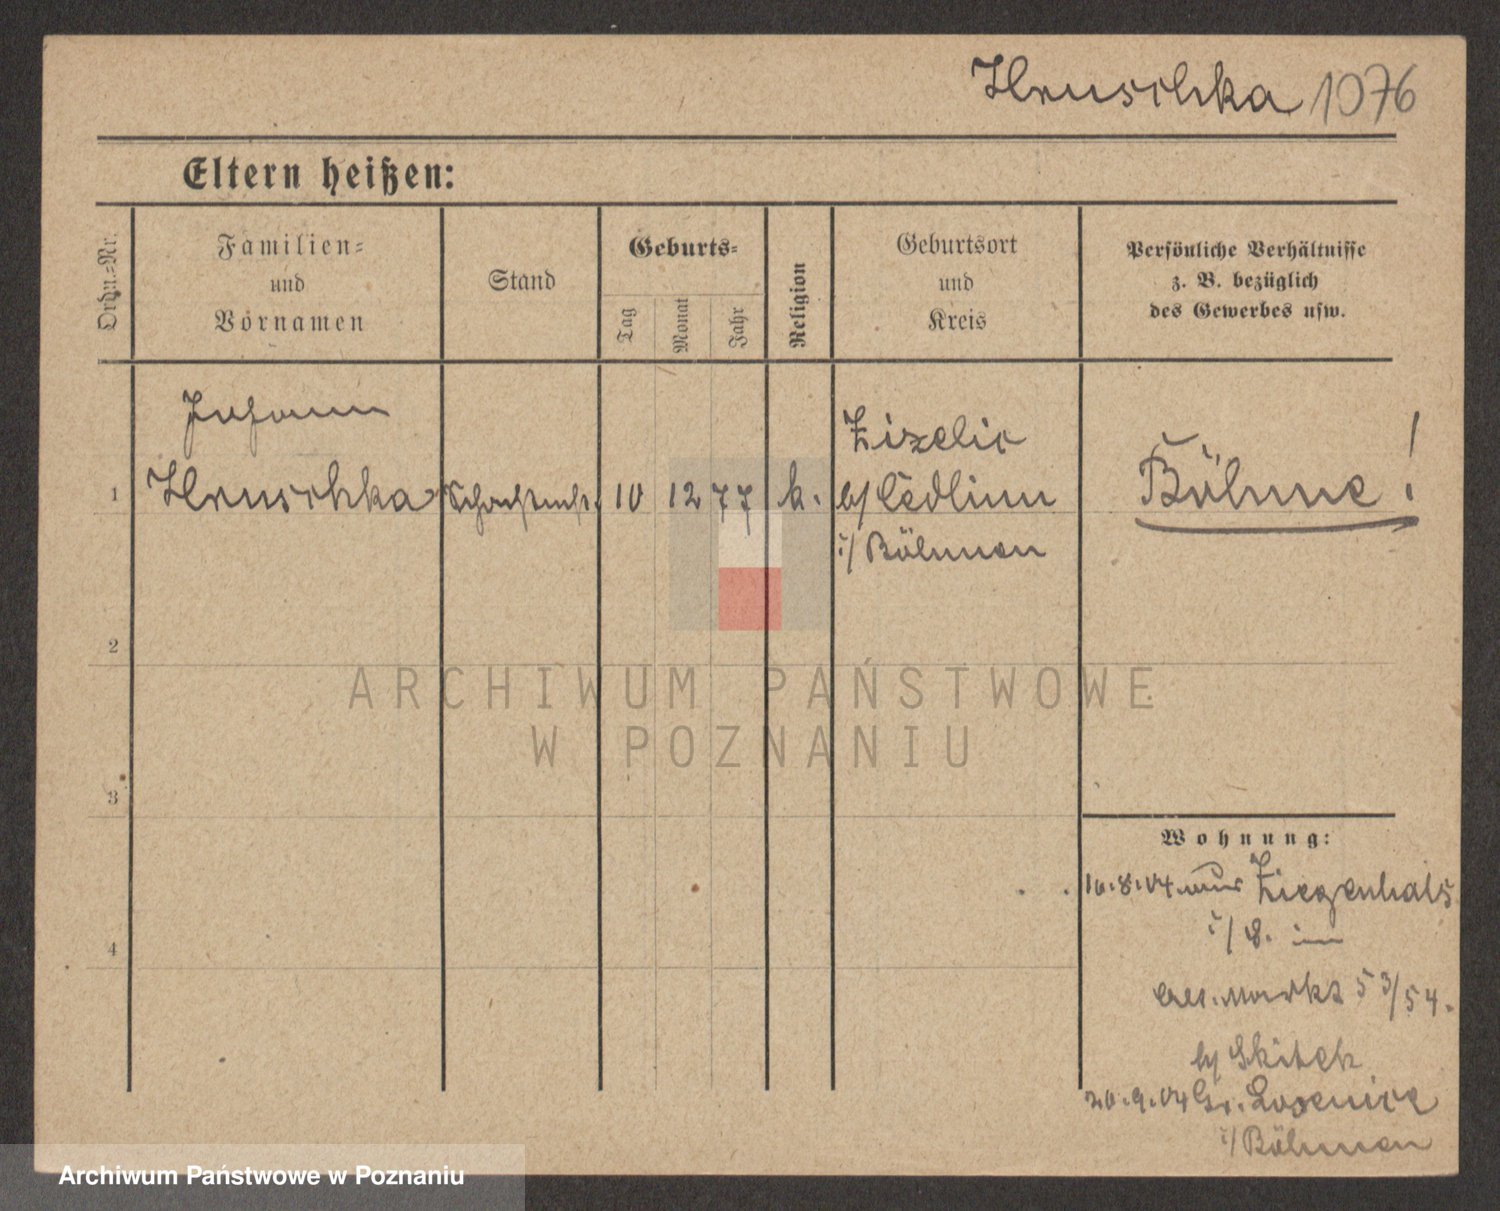 Hruschka 1076
Eltern heißen:
Ordn.-Nr.
Familien-
und
Vornamen
Stand
Geburts-
Tag
Monat
Jahr
Religion
Geburtsort
und
Kreis
Persönliche Verhältnisse
z. B. bezüglich
des Gewerbes usw.
Johann
Zizelic
1 Hruschka 10 12 77 k. b/ Cedlinn Böhme!
i/ Böhmen
2
ARCHIWUM PAŃSTWOWE
W POZNANIU
3
Wohnung:
10.8.04 aus Ziegenhals
i/ S. in
markt 53/54.
b/ Skitek
20.9.04 Gr. Losenice
4
i/ Böhmen
Archiwum Państwowe w Poznaniu